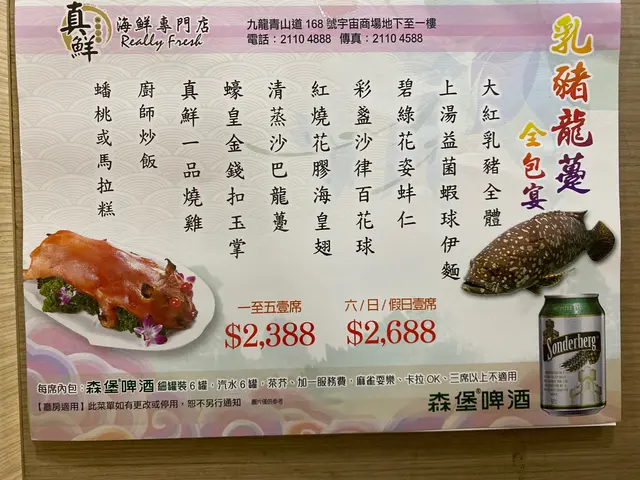 真鮮
海鮮專門店
Really Fresh
九龍青山道 168 號宇宙商場地下至一樓
電話：2110 4888 傳真：2110 4588
乳豬龍躉
全包宴
大紅乳豬全體
上湯益菌蝦球伊麵
碧綠花姿蚌仁
彩盞沙律百花球
紅燒花膠海皇翅
清蒸沙巴龍躉
蠔皇金錢扣玉掌
真鮮一品燒雞
廚師炒飯
蟠桃或馬拉糕
一至五壹席
$2,388
六/日/假日壹席
$2,688
Sonderberg
每席內包：森堡啤酒 細罐裝6罐，汽水6罐，茶芥、加一服務費，麻雀耍樂、卡拉OK、三席以上不適用
【廳房適用】此菜單如有更改或停用，恕不另行通知 圖片僅供參考
森堡®啤酒